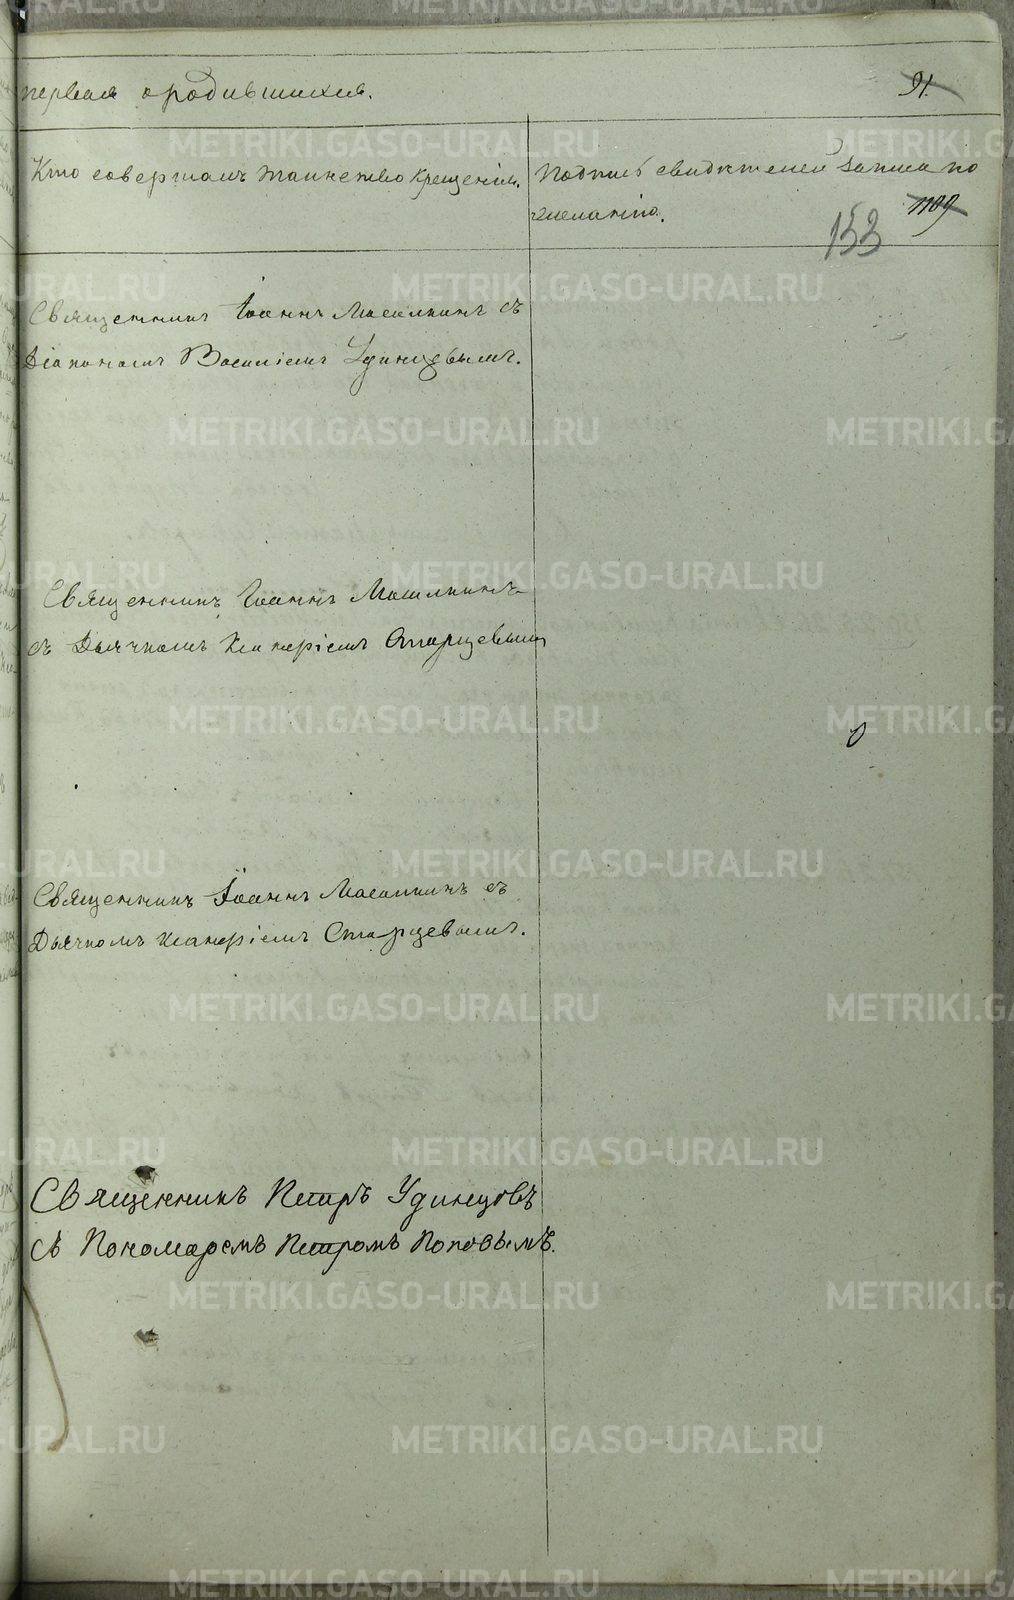 первая о родившихся.
91.
Кто совершалъ таинство крещенія.
Подпись свидѣтелей записи по
желанію.
1109
153
Священникъ Іоаннъ Масалкинъ съ
Діакономъ Василіемъ Удинцевымъ.
Священникъ Іоаннъ Масалкинъ
съ Дьячкомъ Старцевымъ
Священникъ Іоаннъ Масалкинъ съ
Дьячкомъ Старцевымъ.
Священникъ Петръ Удинцовъ
съ Пономаремъ Петромъ Поповымъ.
METRIKI.GASO-URAL.RU